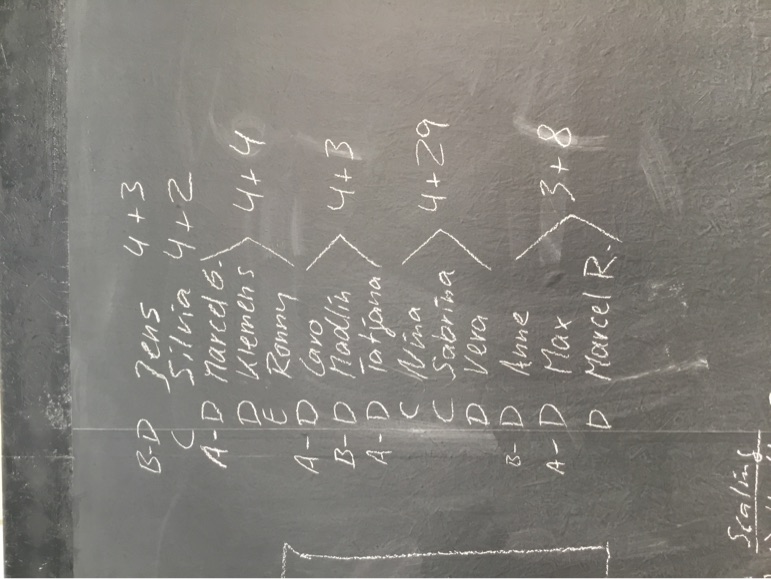 B-D Jens 4+3
C Silvia 4+2
A-D Marcel G.
D Klemens 4+4
E Ronny
A-D Caro
B-D Madlin 4+3
A-D Tatjana
C Nina
C Sabrina 4+29
D Vera
B-D Anne
A-D Max 3+8
D Marcel R.
Scaling